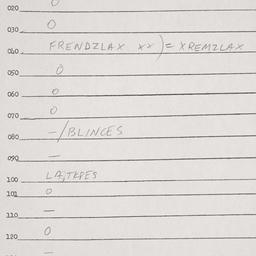 020 0
030 0
040 FRENDZLAX xx) = XREMZLAX
050 0
060 0
070 0
080 -/BLINCES
090 -
100
101 0
110 -
120 0
-